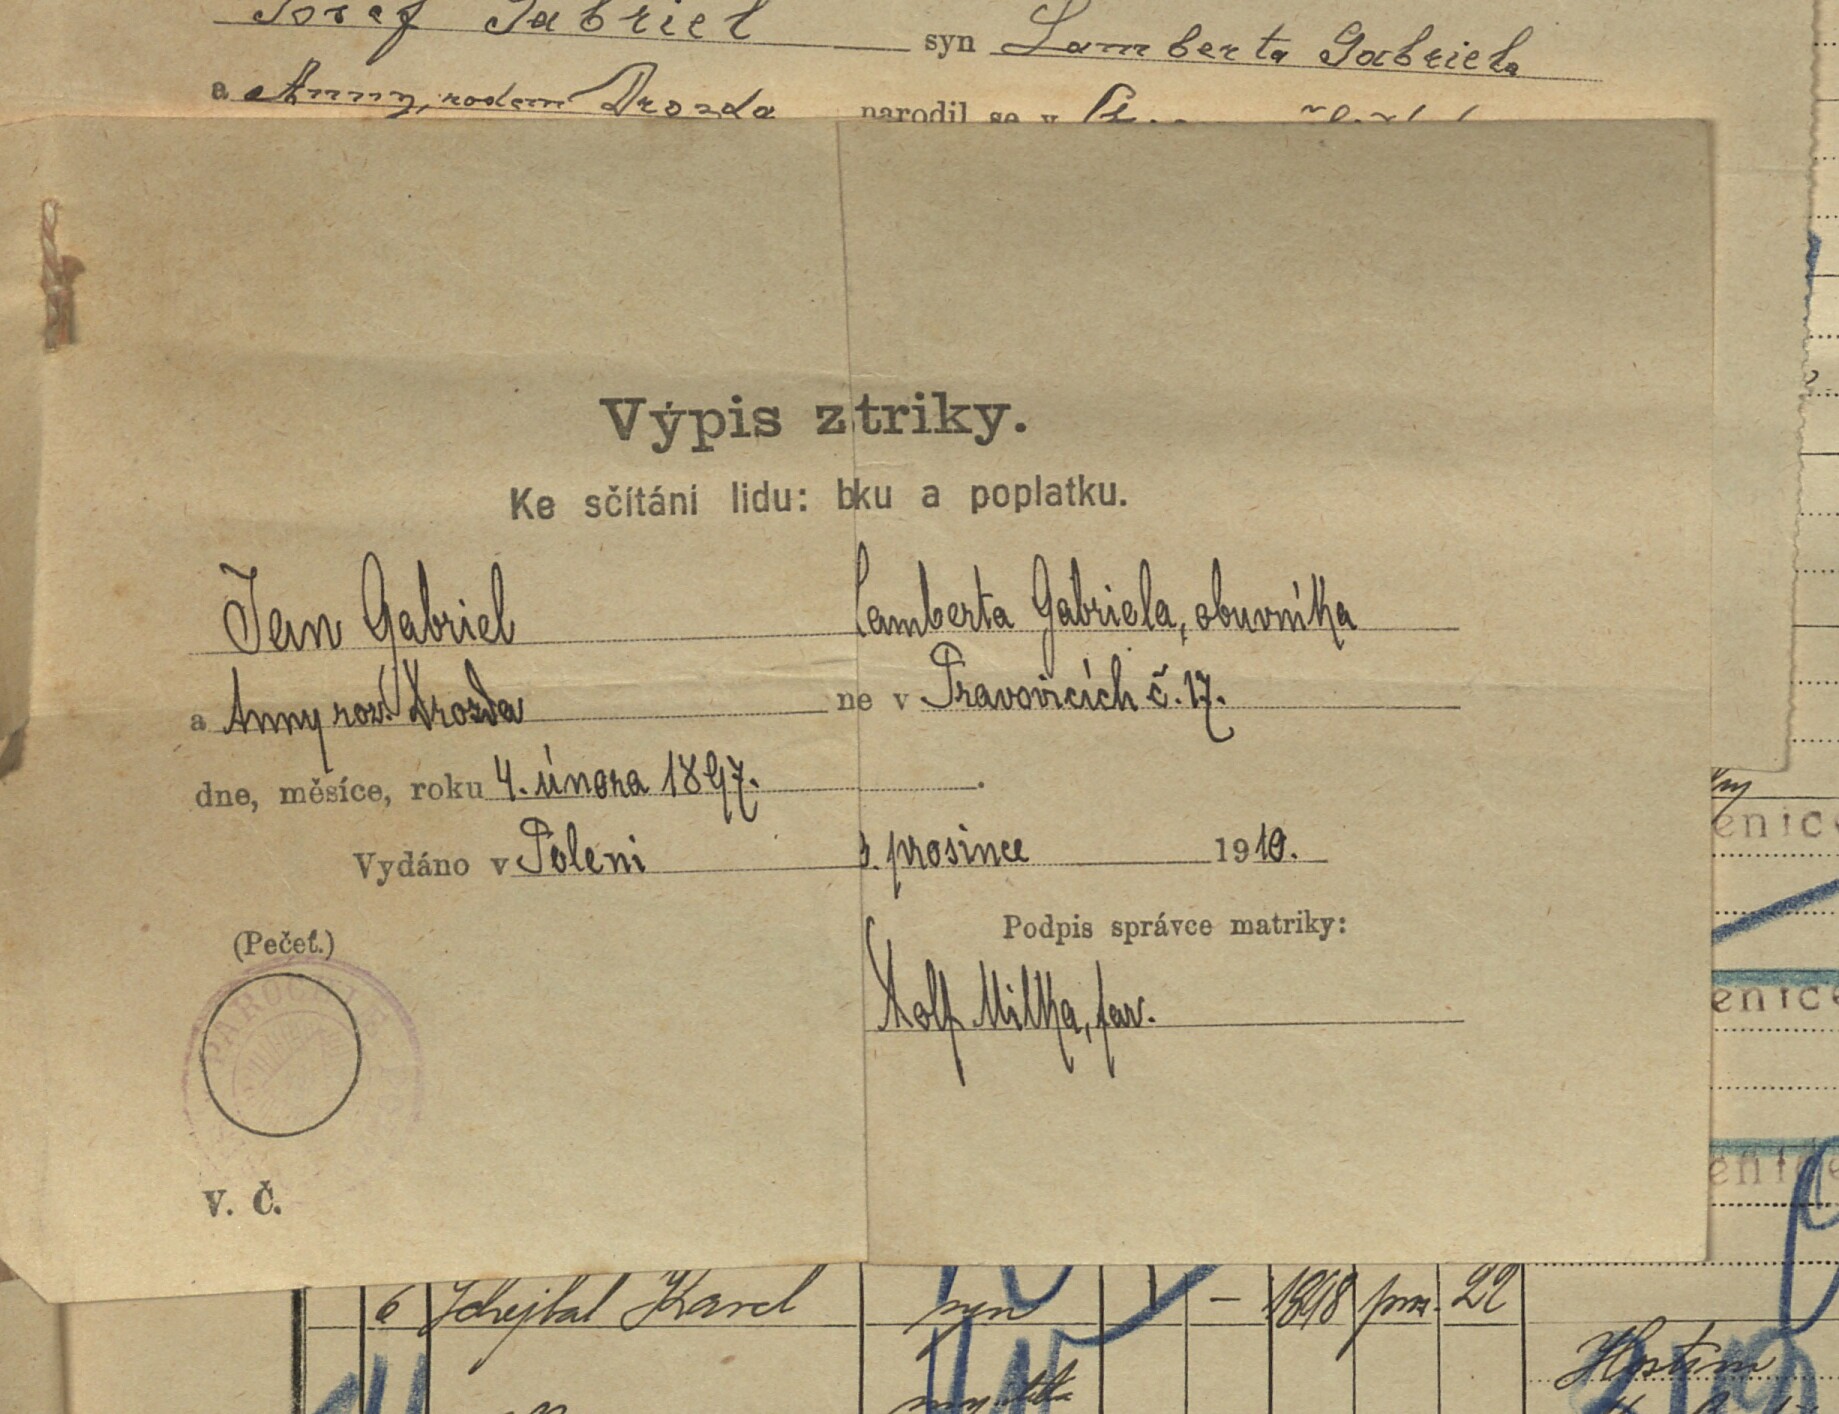 Josef Gabriel syn Lamberta Gabriela
a Anny, rodem Drozda narodil se v
Výpis ztriky.
Ke sčítání lidu: bku a poplatku.
Jan Gabriel Lamberta Gabriela, obuvníka
a Anny roz. Drozda ne v Pravovicích č. 17.
dne, měsíce, roku 4. února 1897.
Vydáno v Poleni 3. prosince 1910.
(Pečeť.) Podpis správce matriky:
Adolf Milka, far.
V. Č.
enice
enice
enice
6 Schejbal Karel syn – 1898 pros. 22
Hostim